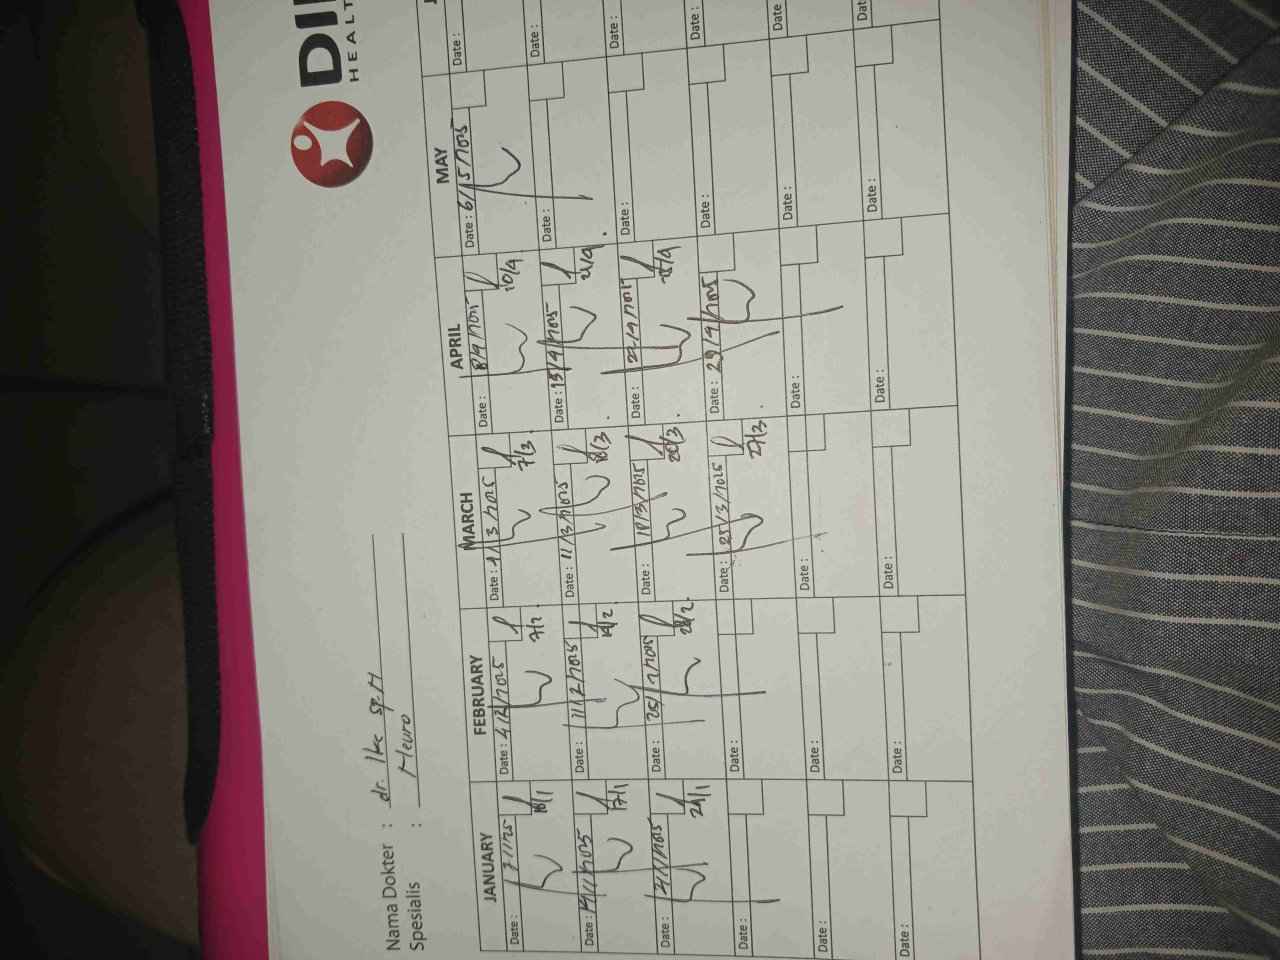 HEALT
Nama Dokter : dr. Ike Sp.M
Spesialis : Neuro
JANUARY FEBRUARY MARCH APRIL MAY
Date : 7/1/25 Date : 4/2/2025 Date : 4/3/2025 Date : 8/4/2025 Date : 6/5/2025 Date :
10/1 7/2 7/3 10/4
Date : 14/1/2025 Date : 11/2/2025 Date : 11/3/2025 Date : 15/4/2025 Date : Date :
17/1 14/2 18/3 21/4
Date : 21/1/2025 Date : 25/2/2025 Date : 18/3/2025 Date : 22/4/2025 Date : Date :
24/1 28/2 20/3
Date : Date : Date : 25/3/2025 Date : 29/4/2025 Date : Date :
27/3
Date : Date : Date : Date : Date : Date
Date : Date : Date : Date : Date : Dat